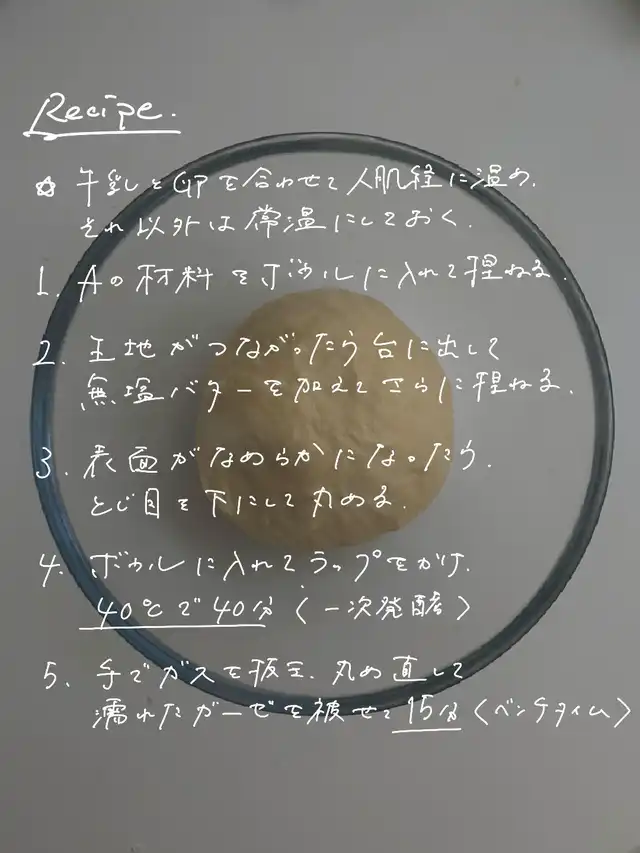 Recipe.
☆ 牛乳と卵を合わせて人肌程に温め、
それ以外は常温にしておく。
1. Aの材料をボウルに入れて捏ねる。
2. 生地がつながったら台に出して
無塩バターを加えてさらに捏ねる。
3. 表面がなめらかになったら、
とじ目を下にして丸める。
4. ボウルに入れてラップをかけ、
40℃で40分〈一次発酵〉
5. 手でガスを抜き、丸め直して
濡れたガーゼを被せて15分〈ベンチタイム〉